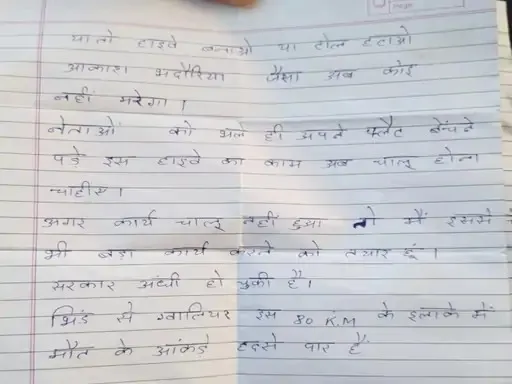 या तो हाइवे बनाओ या टोल हटाओ
आकाश भदौरिया जैसा अब कोई
नहीं मरेगा।
नेताओं को भले ही अपने फ्लैट बेंचने
पड़े इस हाइवे का काम अब चालू होना
चाहीए।
अगर कार्य चालू नहीं हुआ तो मैं इससे
भी बड़ा कार्य करने को तयार हूं।
सरकार अंधी हो चुकी है।
भिंड से ग्वालियर इस 80 K.M के इलाके में
मौत के आंकड़े हदसे पार हैं